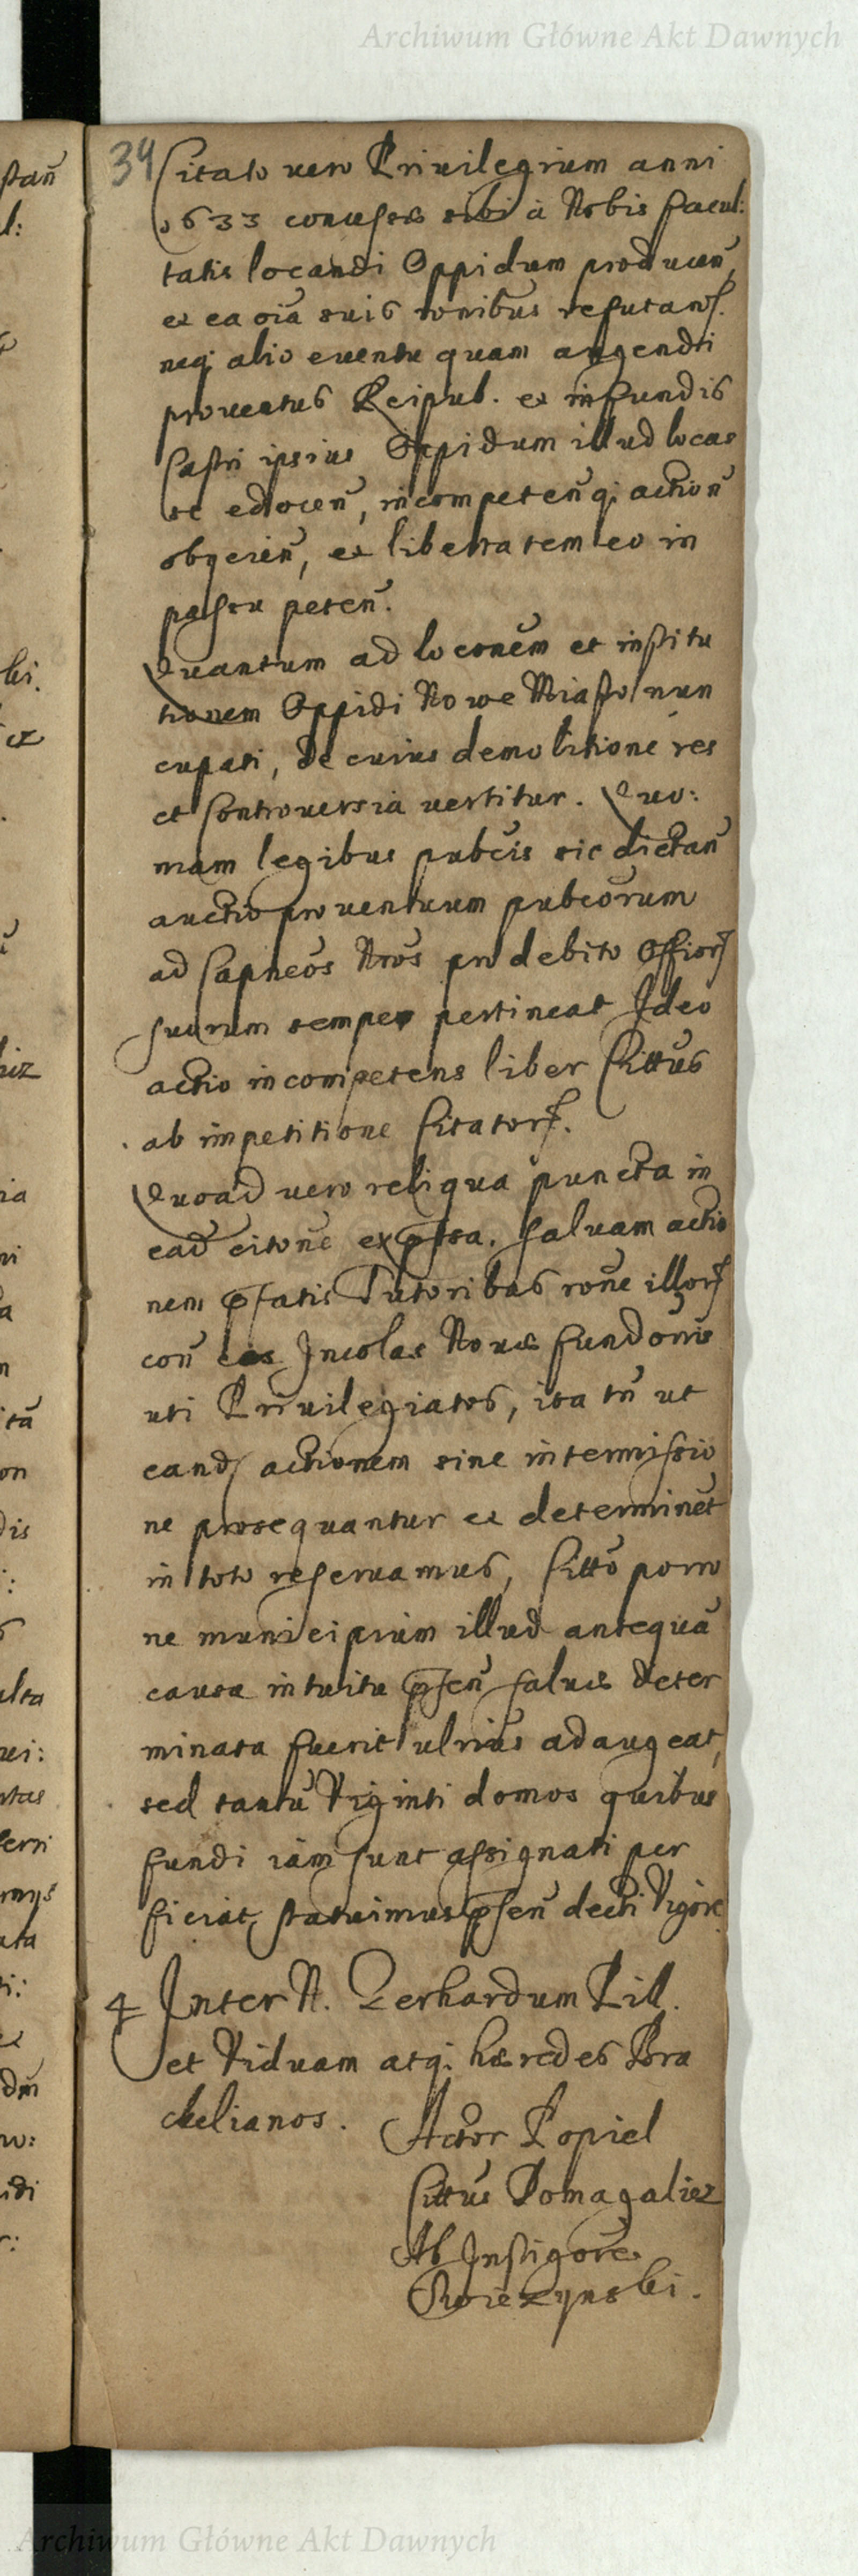 Archiwum Główne Akt Dawnych
34 Citato vero Privilegium anni
1633 concessae sibi à Nobis facul:
tatis locandi Oppidum producen̄,
et ea oīa suis ronibus refutan.
neq; alio eventu quam augendi
proventus Reipub. et in fundis
Castri ipsius Oppidum illud locas
se edocen̄, incompeten̄q; action̄
obijcien̄, et liberratem eo in
passu peten̄.
Quantum ad loconem et institu
tionem Oppidi Nowe Miasto nun
cupati, de cuius demolitione res
et Controversia vertitur. Quo:
niam legibus pubcis sic dictan̄
auctio proventuum pubcorum
ad Capneos Nros pro debito Offior
suorum semper pertineat Ideo
actio incompetens liber Cittus
ab impetitione Citator.
Quoad vero reliqua puncta in
ead citone expssa. salvam actio
nem pfatis Tutoribus rone illor
con̄ eos Incolas Novae fundonis
uti Privilegiatos, ita tn̄ ut
eand actionem sine intermissio
ne prosequantur et determinet
in toto reservamus, Citto porro
ne municipium illud antequā
causa intuitu psen̄ salvae deter
minata fuerit ulrius adaugeat,
sed tantū Viginti domos quibus
fundi iam sunt assignati per
ficiat, statuimus psen̄ decti Vigore
4 Inter N. Gerhardum Pill.
et Viduam atq; haeredes Pra
chelianos.
Actor Popiel
Cittus Domagalicz
Ab Instigore
Archiwum Główne Akt Dawnych